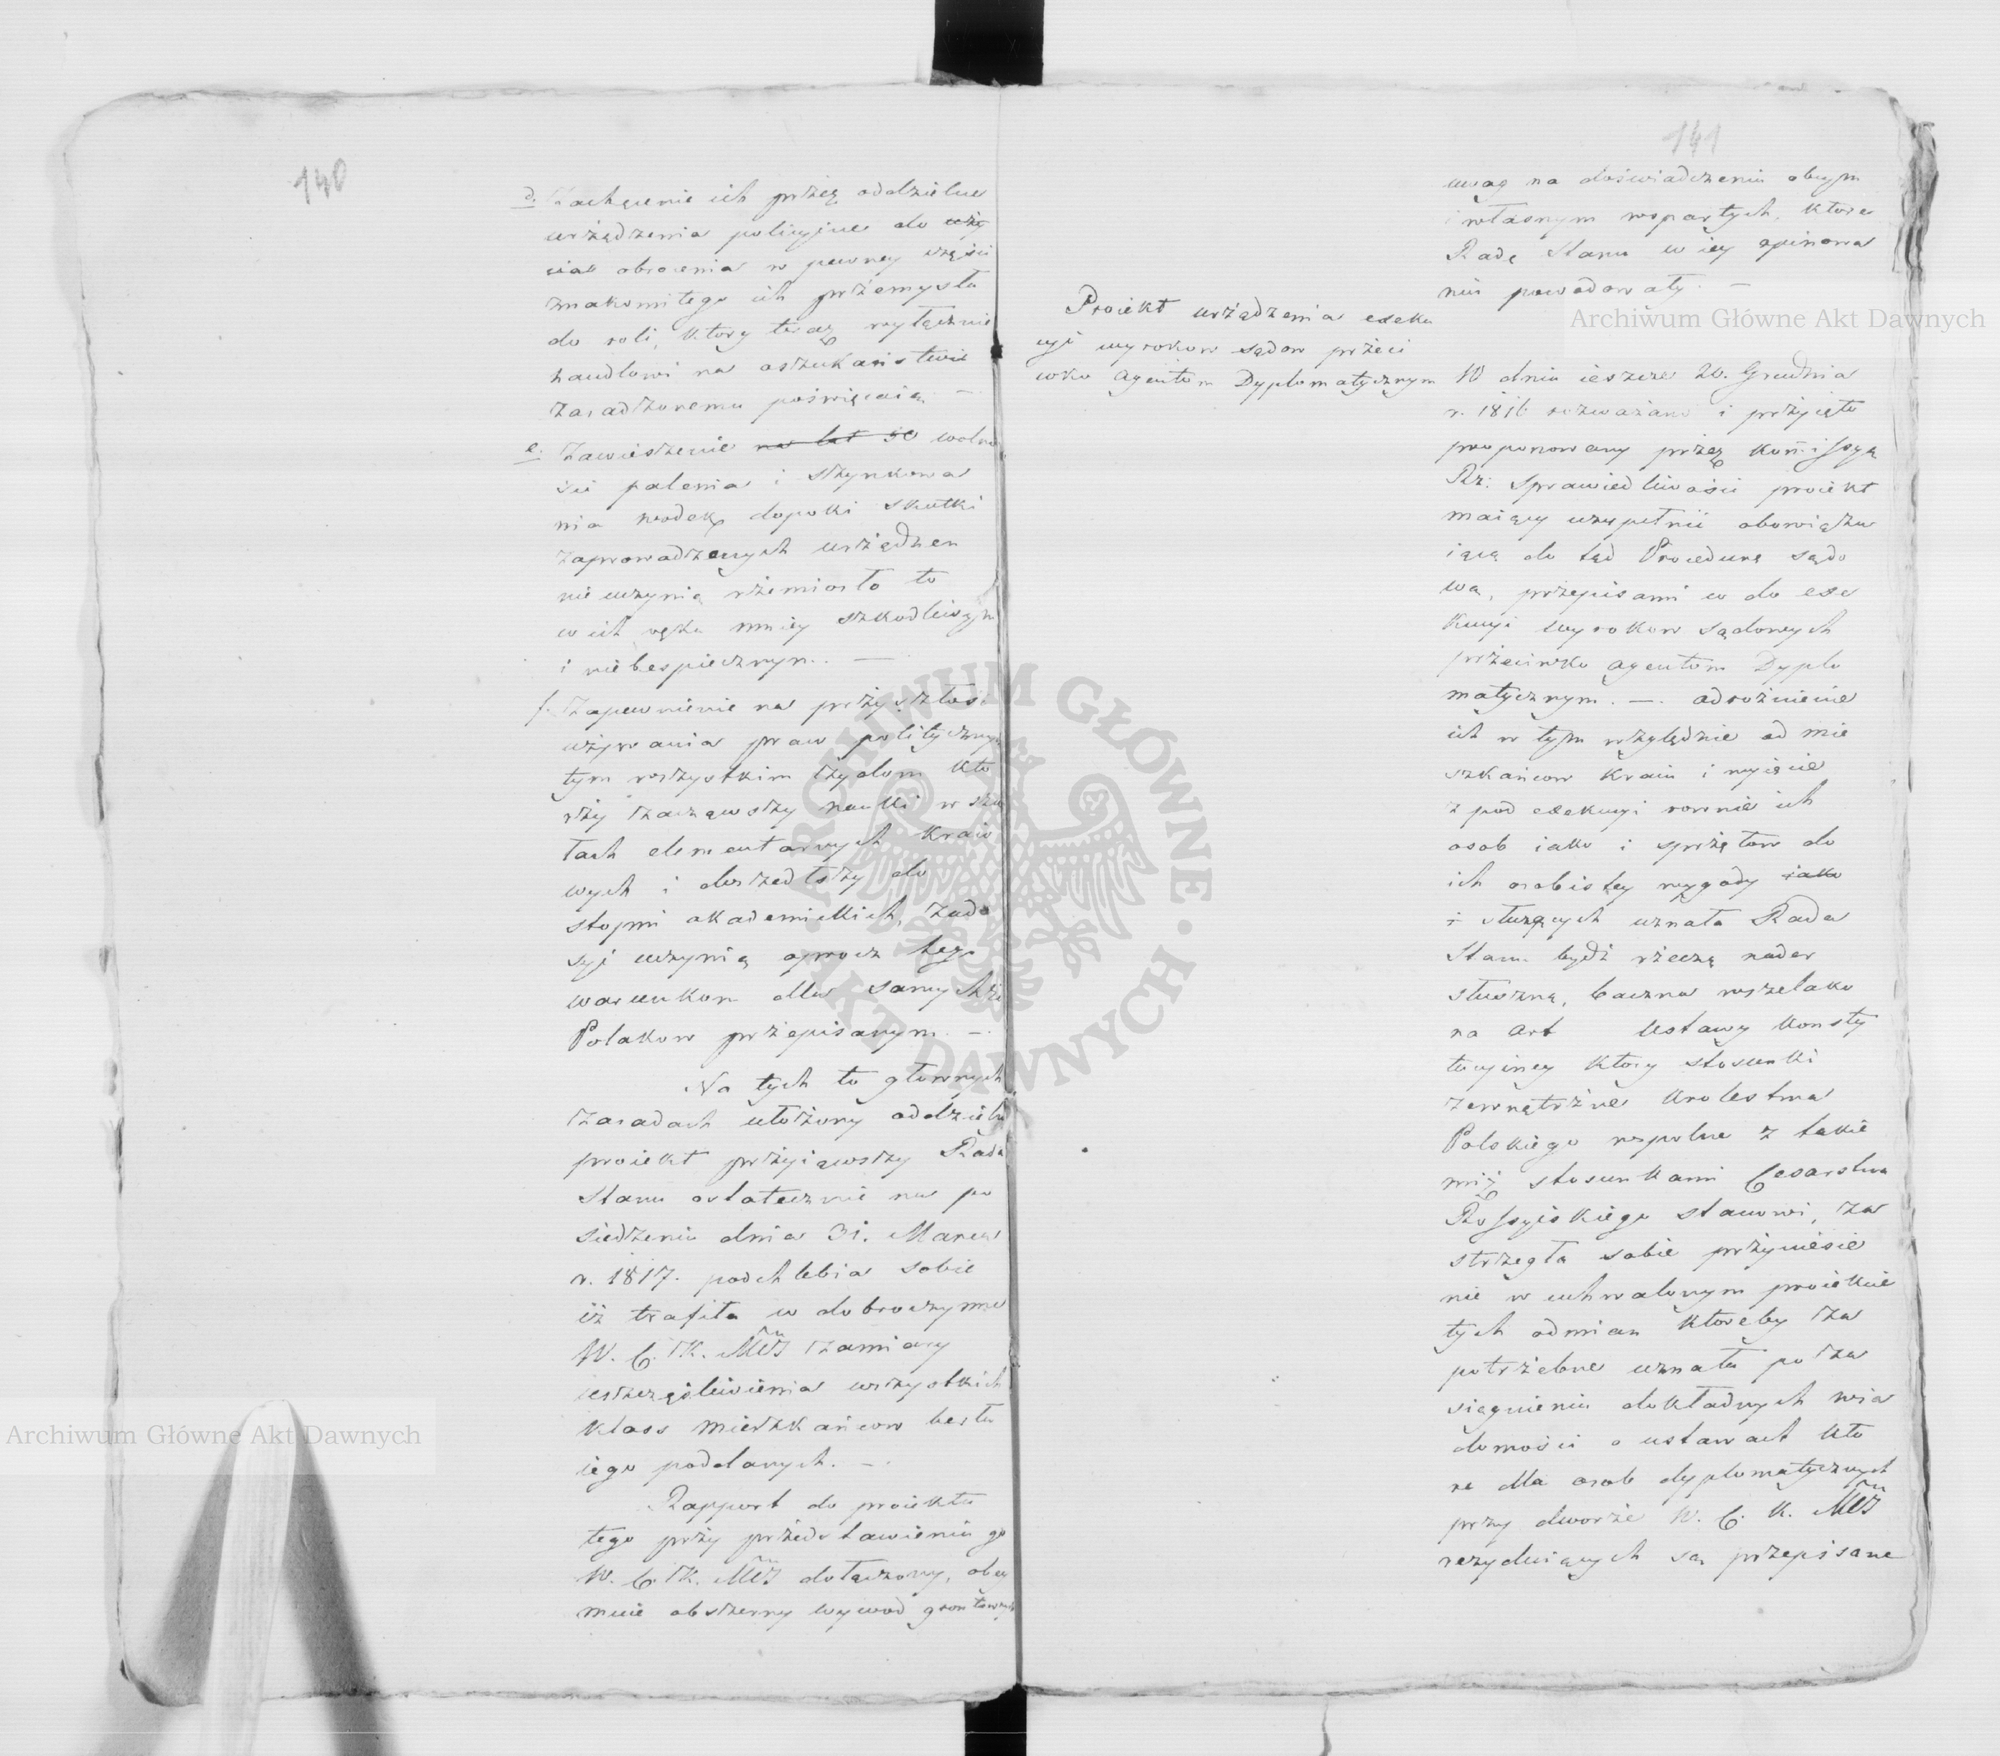 140
d. Zachęcenie ich przez oddzielne
urządzenia policyjne do uży
cia obrocenia w pewney części
znakomitego ich przemysłu
do roli, ktory teraz wyłącznie
handlowi na oszukaństwie
zasadzonemu poświęcaią. —
e. Zawieszenie na lat 50 wolno
ści palenia i szynkowa
nia wodek dopoki skutki
zaprowadzonych urządzen
nie uczynią rzemiosło to
w ich ręku mniey szkodliwym
i niebespiecznym. —
f. Zapewnienie na przyszłość
używania praw politycznych
tym wszystkim żydom kto
rzy zacząwszy nauki w szko
łach elementarnych kraio
wych i doszedłszy do
stopni akademickich, zado
syć uczynią oprocz tego
warunkom dla samychże
Polakow przepisanym. —
Na tych to głownych
zasadach ułożony oddzielny
proiekt przyiąwszy Rada
Stanu ostatecznie na po
siedzeniu dnia 31. Marca
r. 1817. podchlebia sobie
iż trafiła w dobroczynne
W. C. K. Mci zamiary
uszczęśliwienia wszystkich
klass mieszkańcow berłu
iego poddanych. —
Rapport do proiektu
tego przy przedstawieniu go
W. C. K. Mci dołączony, obey
muie obszerny wywod gruntownych
141
uwag na doświadczeniu obcym
i własnym wspartych, ktore
Radę Stanu w iey opinowa
niu powodowały. —
Proiekt urządzenia exeku
cyi wyrokow sądow przeci
wko Agentom Dyplomatycznym
W dniu ieszcze 20. Grudnia
r. 1816 rozważano i przyięto
proponowany przez Kommissyą
Rz: Sprawiedliwości proiekt
maiący uzupełnić obowiązu
iącą do tąd Procedurę sądo
wą, przepisami co do exe
kucyi wyrokow sądowych
przeciwko Agentom Dyplo
matycznym. —. odrożnienie
ich w tym względzie od mie
szkańcow kraiu i wyięcie
z pod exekucyi rownie ich
osob iako i sprzętow do
ich osobistey wygody iako
i służących uznała Rada
Stanu bydź rzeczą nader
słuszną, baczna wszelako
na Art Ustawy Konsty
tucyiney ktory stosunki
zewnętrzne Krolestwa
Polskiego wspolne z takie
miż stosunkami Cesarstwa
Rossyiskiego stanowi, za
strzegła sobie przyniesie
nie w uchwalonym proiekcie
tych odmian ktoreby za
potrzebne uznała po za
siągnieniu dokładnych wia
domości o ustawach kto
re dla osob dyplomatycznych
przy dworze W. C. K. Mci
rezyduiących są przepisane
Archiwum Główne Akt Dawnych
Archiwum Główne Akt Dawnych
ARCHIWUM GŁÓWNE · AKT DAWNYCH ·